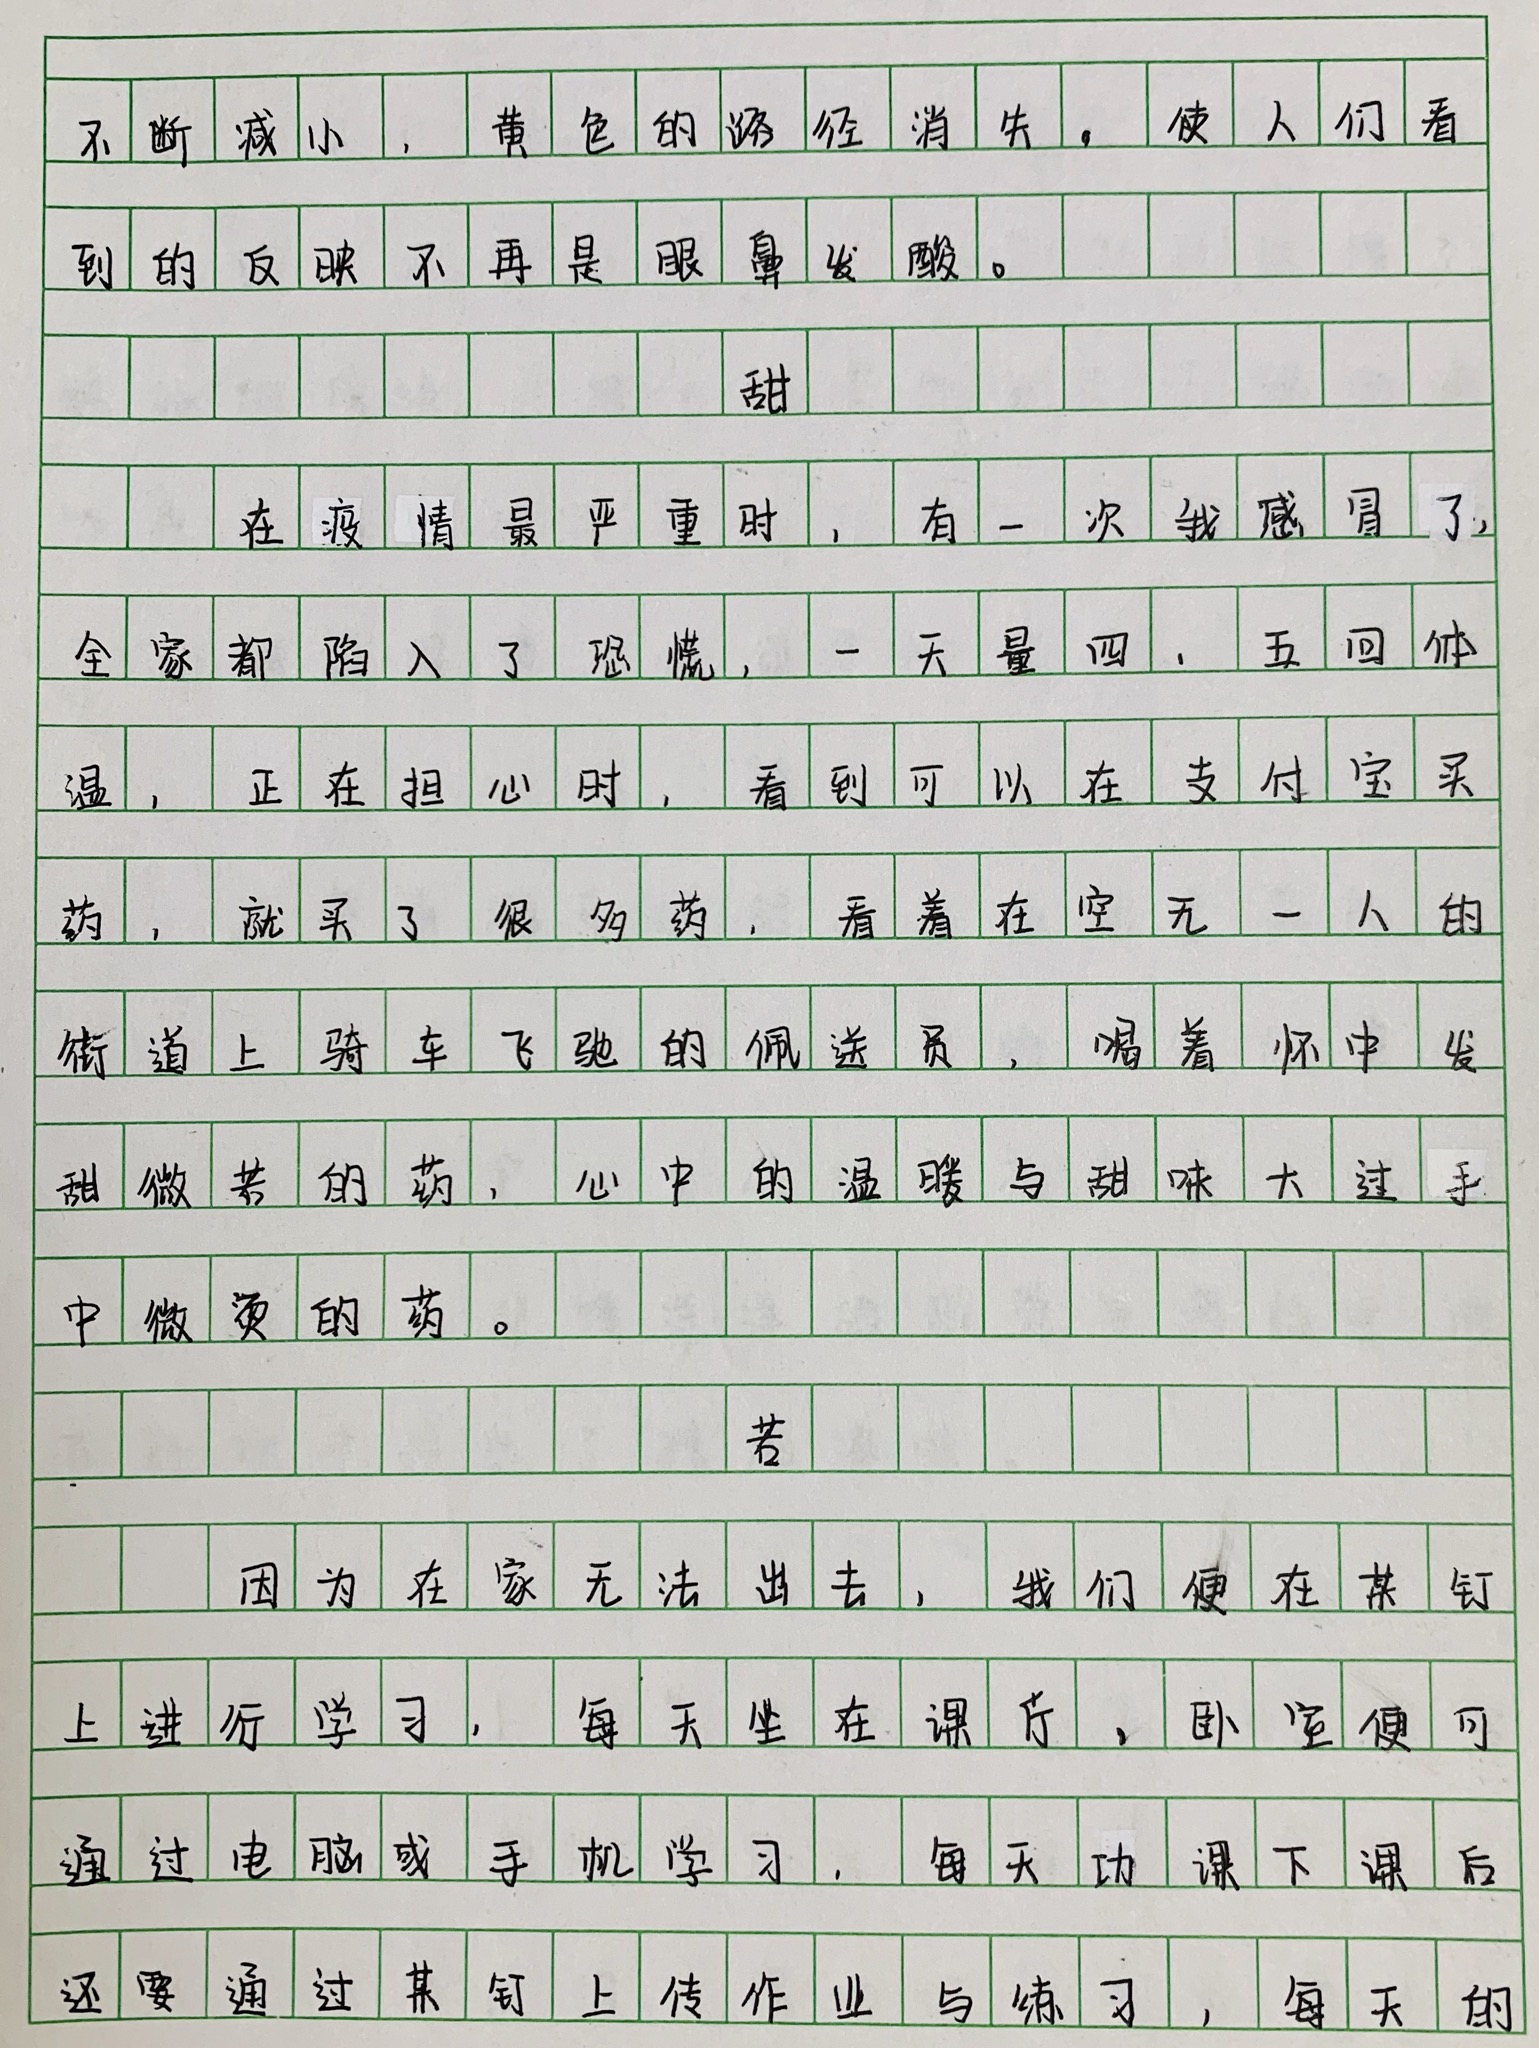 不断减小，黄色的路径消失。使人们看
到的反映不再是眼鼻发酸。
甜
在疫情最严重时，有一次我感冒了，
全家都陷入了恐慌，一天量四，五回体
温，正在担心时，看到可以在支付宝买
药，就买了很多药，看着在空无一人的
街道上骑车飞驰的佩送员，喝着怀中发
甜微苦的药，心中的温暖与甜味大过手
中微烫的药。
苦
因为在家无法出去，我们便在某钉
上进行学习，每天坐在课厅，卧室便可
通过电脑或手机学习，每天功课下课后
还要通过某钉上传作业与练习，每天的